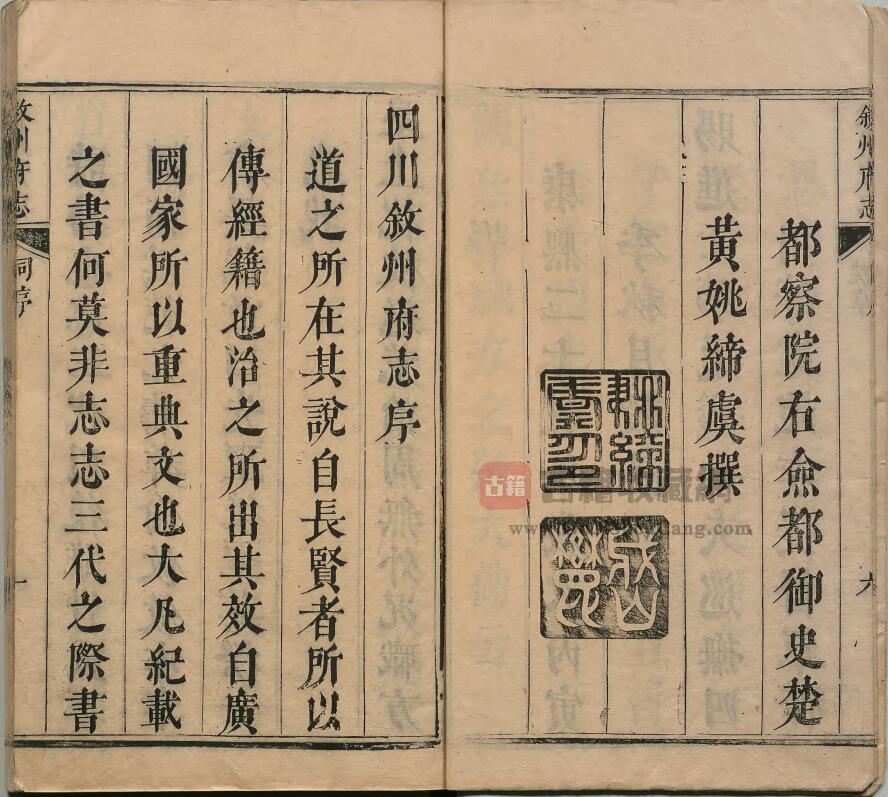 都察院右僉都御史楚
黃姚締虞撰
六
四川敘州府志序
道之所在其說自長賢者所以
傳經籍也治之所出其效自廣
國家所以重典文也大凡紀載
之書何莫非志志三代之際書
敘州府志
序
一
古籍